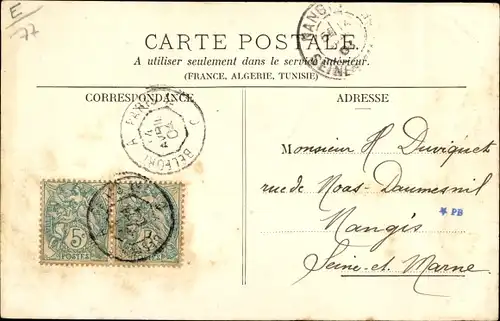 E
77
NANGIS
SEINE
CARTE POSTALE
A utiliser seulement dans le service intérieur.
(FRANCE, ALGERIE, TUNISIE)
CORRESPONDANCE
ADRESSE
BELFORT A PARIS
14
AVRIL
04
Monsieur H Duviquet
rue de Noas-Daumesnil
* PB
Nangis
Seine-et-Marne
5
POSTES